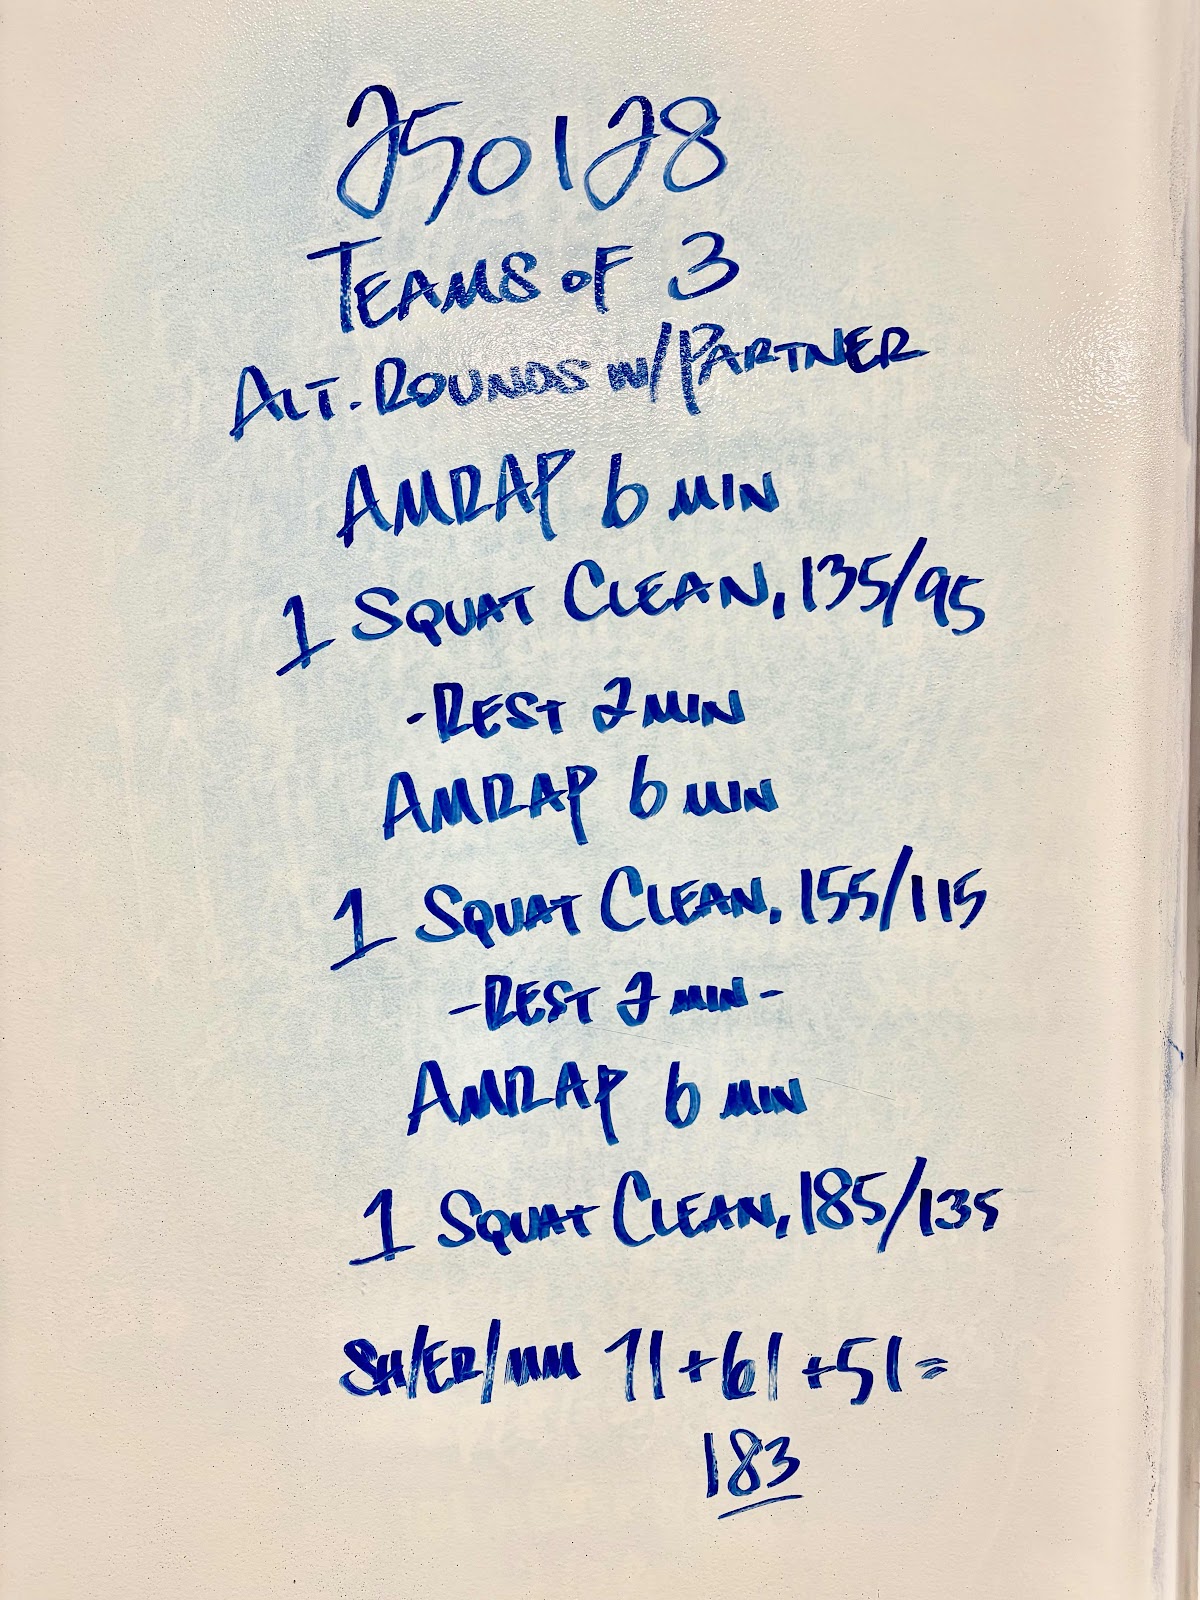 250128
TEAMS OF 3
ALT. ROUNDS W/PARTNER
AMRAP 6 MIN
1 SQUAT CLEAN, 135/95
-REST 2 MIN
AMRAP 6 MIN
1 SQUAT CLEAN, 155/115
-REST 2 MIN-
AMRAP 6 MIN
1 SQUAT CLEAN, 185/135
SH/ER/MM 71+61+51=
183